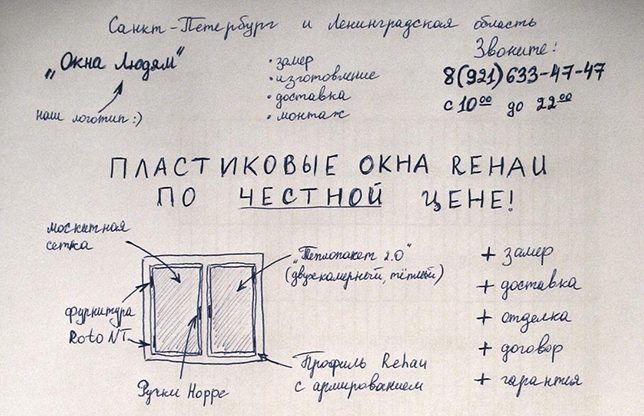 Санкт-Петербург и Ленинградская область
„Окна Людям"
наш логотип:)
• замер
• изготовление
• доставка
• монтаж
Звоните:
8(921)633-47-47
с 10⁰⁰ до 22⁰⁰
ПЛАСТИКОВЫЕ ОКНА REHAU
ПО ЧЕСТНОЙ ЦЕНЕ!
москитная
сетка
фурнитура
Roto NT
Ручки Hoppe
„Теплопакет 2.0"
(двухкамерный, тёплый)
Профиль Rehau
с армированием
+ замер
+ доставка
+ отделка
+ договор
+ гарантия